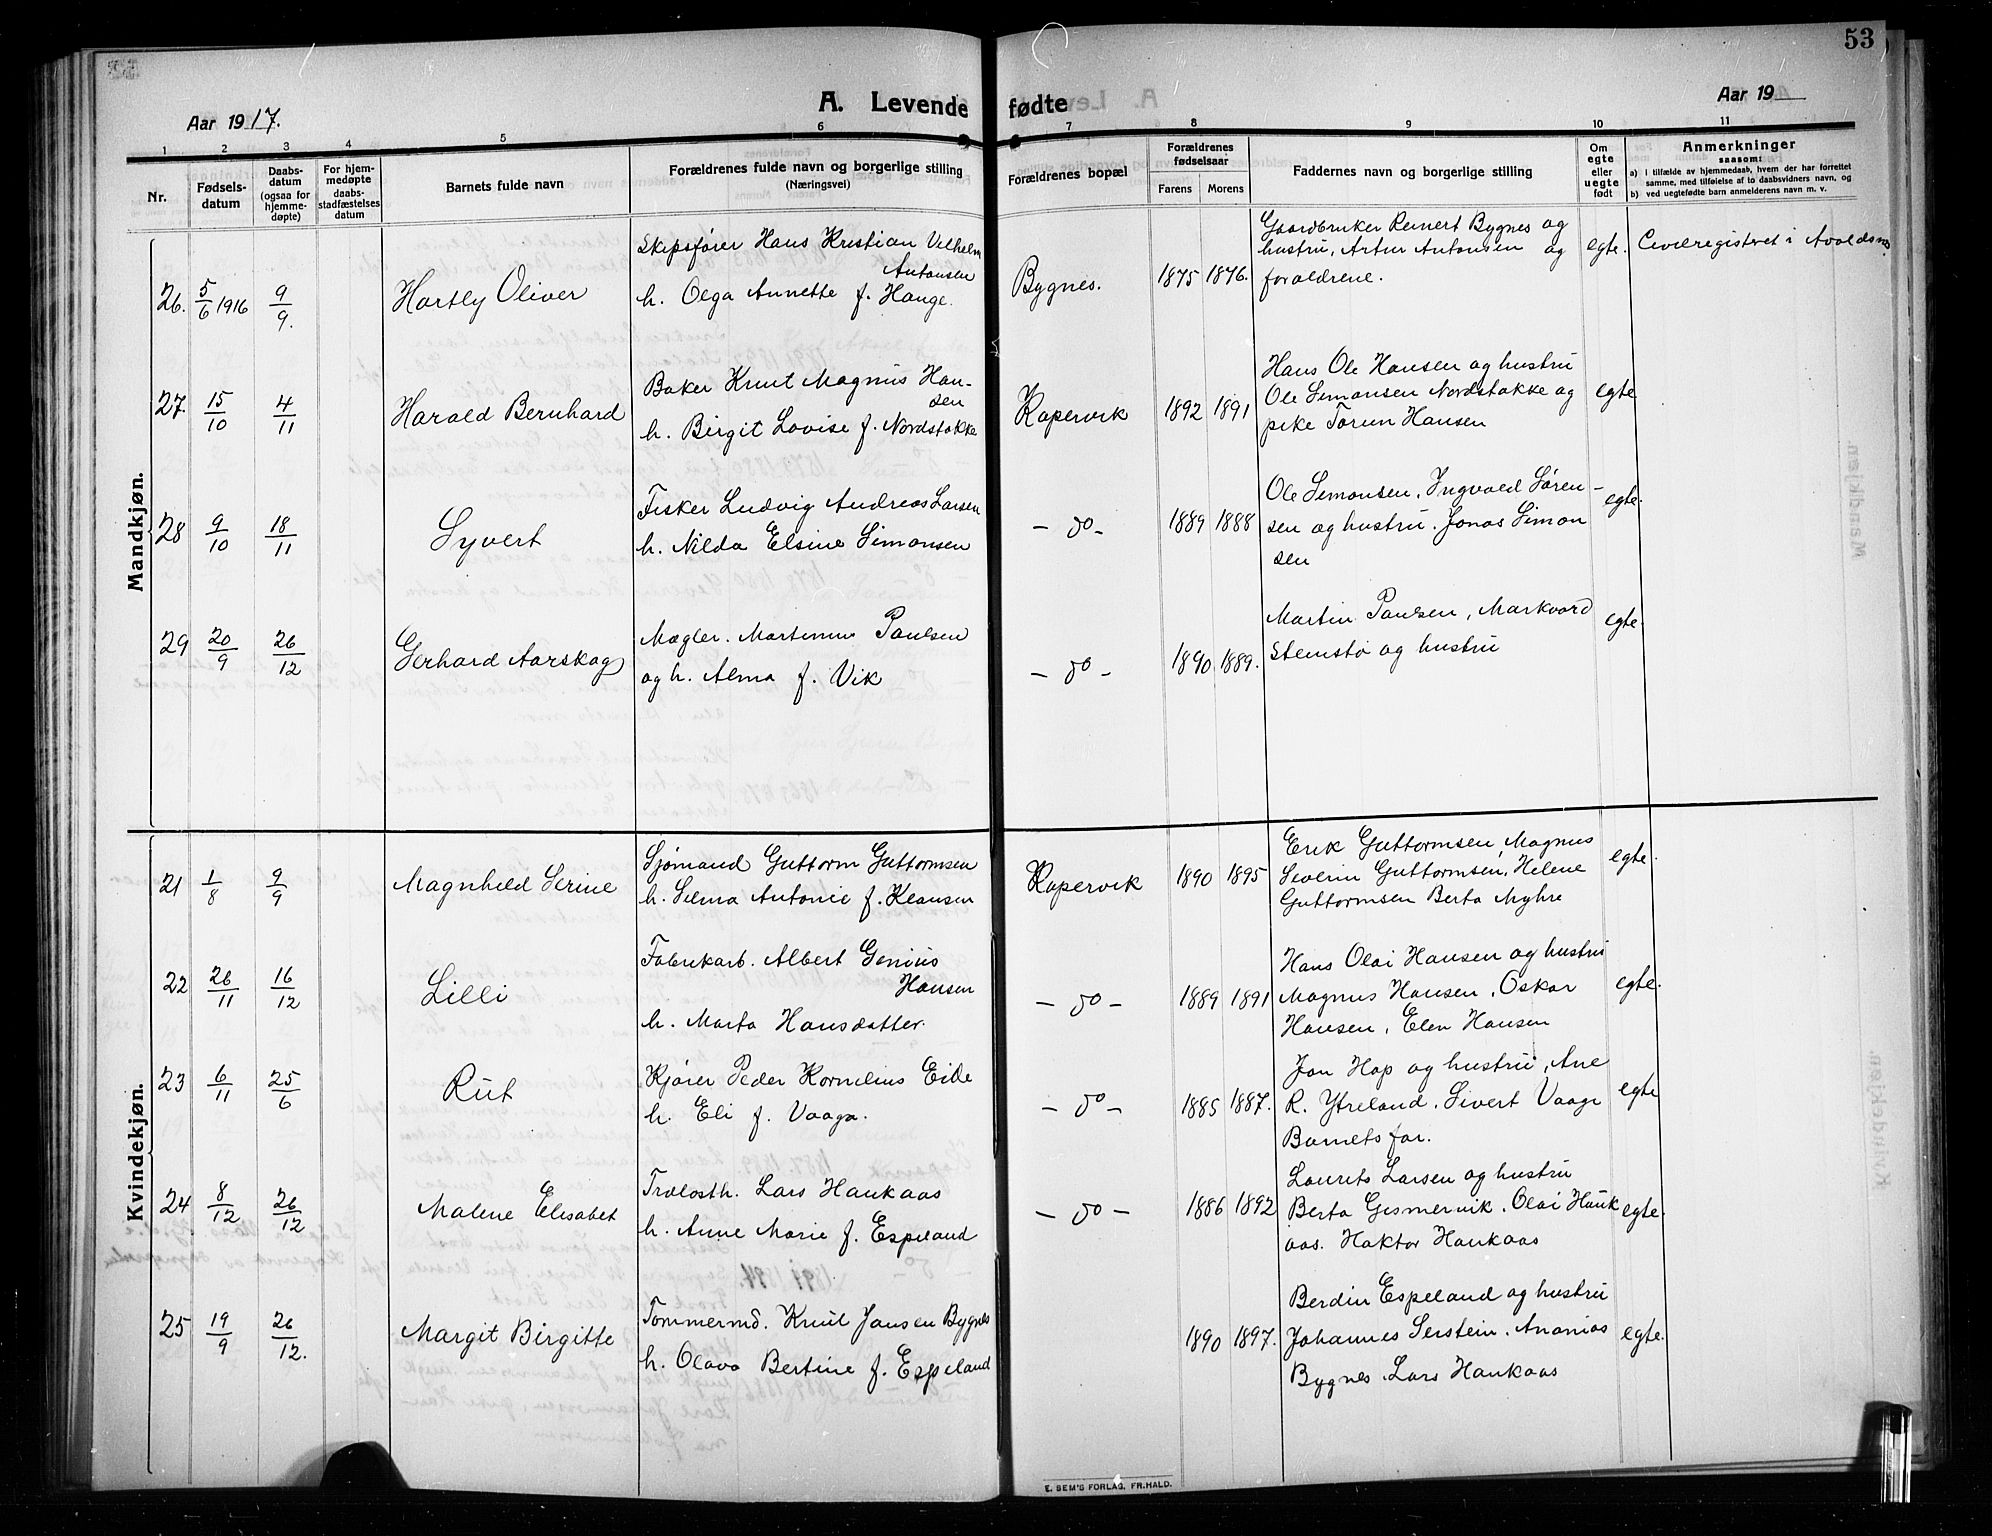 53
Aar 1917.
A. Levende fødte
Aar 19
1 2 3 4 5 6 7 8 9 10 11
Nr.
Fødsels-
datum
Daabs-
datum
(ogsaa for
hjemme-
døpte)
For hjem-
medøpte
daabs-
stadfæstelses
datum
Barnets fulde navn
Forældrenes fulde navn og borgerlige stilling
(Næringsvei)
Forældrenes bopæl
Forældrenes
fødselsaar
Farens Morens
Faddernes navn og borgerlige stilling
Om
egte
eller
uegte
født
Anmerkninger
saasom:
a) i tilfælde av hjemmedaab, hvem der har forrettet
samme, med tilføielse af to daabsvidners navn, og
b) ved uegtefødte barn anmelderens navn m. v.
Mandkjøn.
26. 5/6 1916 9/9. Hartly Oliver
Skipsfører Hans Kristian Vilhelm
Antonsen
h. Olga Annette f. Hauge.
Bygnes. 1875 1876.
Gaardbruker Reinert Bygnes og
hustru, Artur Antonsen og
forældrene.
egte. Civilregistret i Avaldsnes
27. 15/10 4/11 Harald Bernhard
Baker Knut Magnus Han-
sen
h. Birgit Lovise f. Nordstokke
Kopervik 1892 1891
Hans Ole Hansen og hustru
Ole Simonsen Nordstokke og
pike Torun Hansen
egte
28 9/10 18/11 Syvert
Fisker Ludvig Andreas Larsen
h. Nilda Elsine Simonsen
- do - 1889 1888
Ole Simonsen, Ingvald Søren-
sen og hustru. Jonas Simon
sen
egte.
29 20/9 26/12 Gerhard Aarskog
Mægler. Martinius Paulsen
og h. Alma f. Vik
- do - 1890 1889.
Martin Paulsen, Markvard
Stemstø og hustru
egte.
Kvindekjøn.
21 1/8 9/9 Magnhild Serine
Sjømand Guttorm Guttormsen
h. Selma Antonie f. Klausen
Kopervik 1890 1895
Erik Guttormsen, Magnus
Severin Guttormsen, Helene
Guttormsen Berta Myhre
egte.
22 26/11 16/12 Lilli
Fabrikarb. Albert Genius
Hansen
h. Marta Hansdatter.
- do - 1889 1891
Hans Olai Hansen og hustru
Magnus Hansen, Oskar
Hansen, Elen Hansen
egte.
23 6/11 25/6 Rut
Kjører Peder Kornelius Eide
h. Eli f. Vaaga.
- do - 1885 1887.
Jon Hop og hustru, Ane
R. Ytreland. Sivert Vaage
Barnets far.
egte
24 8/12 26/12 Malene Elisabet
Trælasth. Lars Haukaas
h. Anne Marie f. Espeland
- do - 1886 1892
Laurits Larsen og hustru
Berta Gismervik. Olai Hauk
aas. Haktor Haukaas
egte.
25 19/9 26/12. Margit Birgitte
Tømmermd. Knut Jansen Bygnes
h. Olava Bertine f. Espeland
1890 1897.
Berdin Espeland og hustru
Johannes Serstein. Ananias
Bygnes. Lars Haukaas
egte.
E. SEM'S FORLAG, FR.HALD.